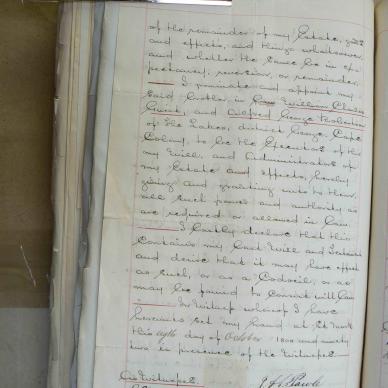 of the remainder of my Estate, goods
and effects, and things whatsoever
and whether the same be in ex-
pectancy, reversion, or remainder.
I nominate and appoint my
said brother in law William Charles
and Alfred George
of The Lakes, district George, Cape
Colony, to be the Executors of this
my Will, and Administrators of
my Estate and effects, hereby
giving and granting unto them
all such power and authority as
are required or allowed in Law.
I lastly declare that this
contains my Last Will and Testament
and desire that it may have effect
as such, or as a Codicil, or as
may be found to consist with Law
In Witness whereof I have
hereunto set my hand at
this day of October 1800 and ninety
two in presence of the Witnesses
As Witnesses